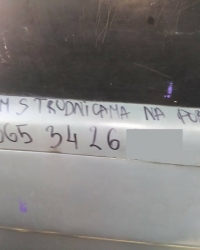 M S TRUDNICAMA NA POR
065 34 26